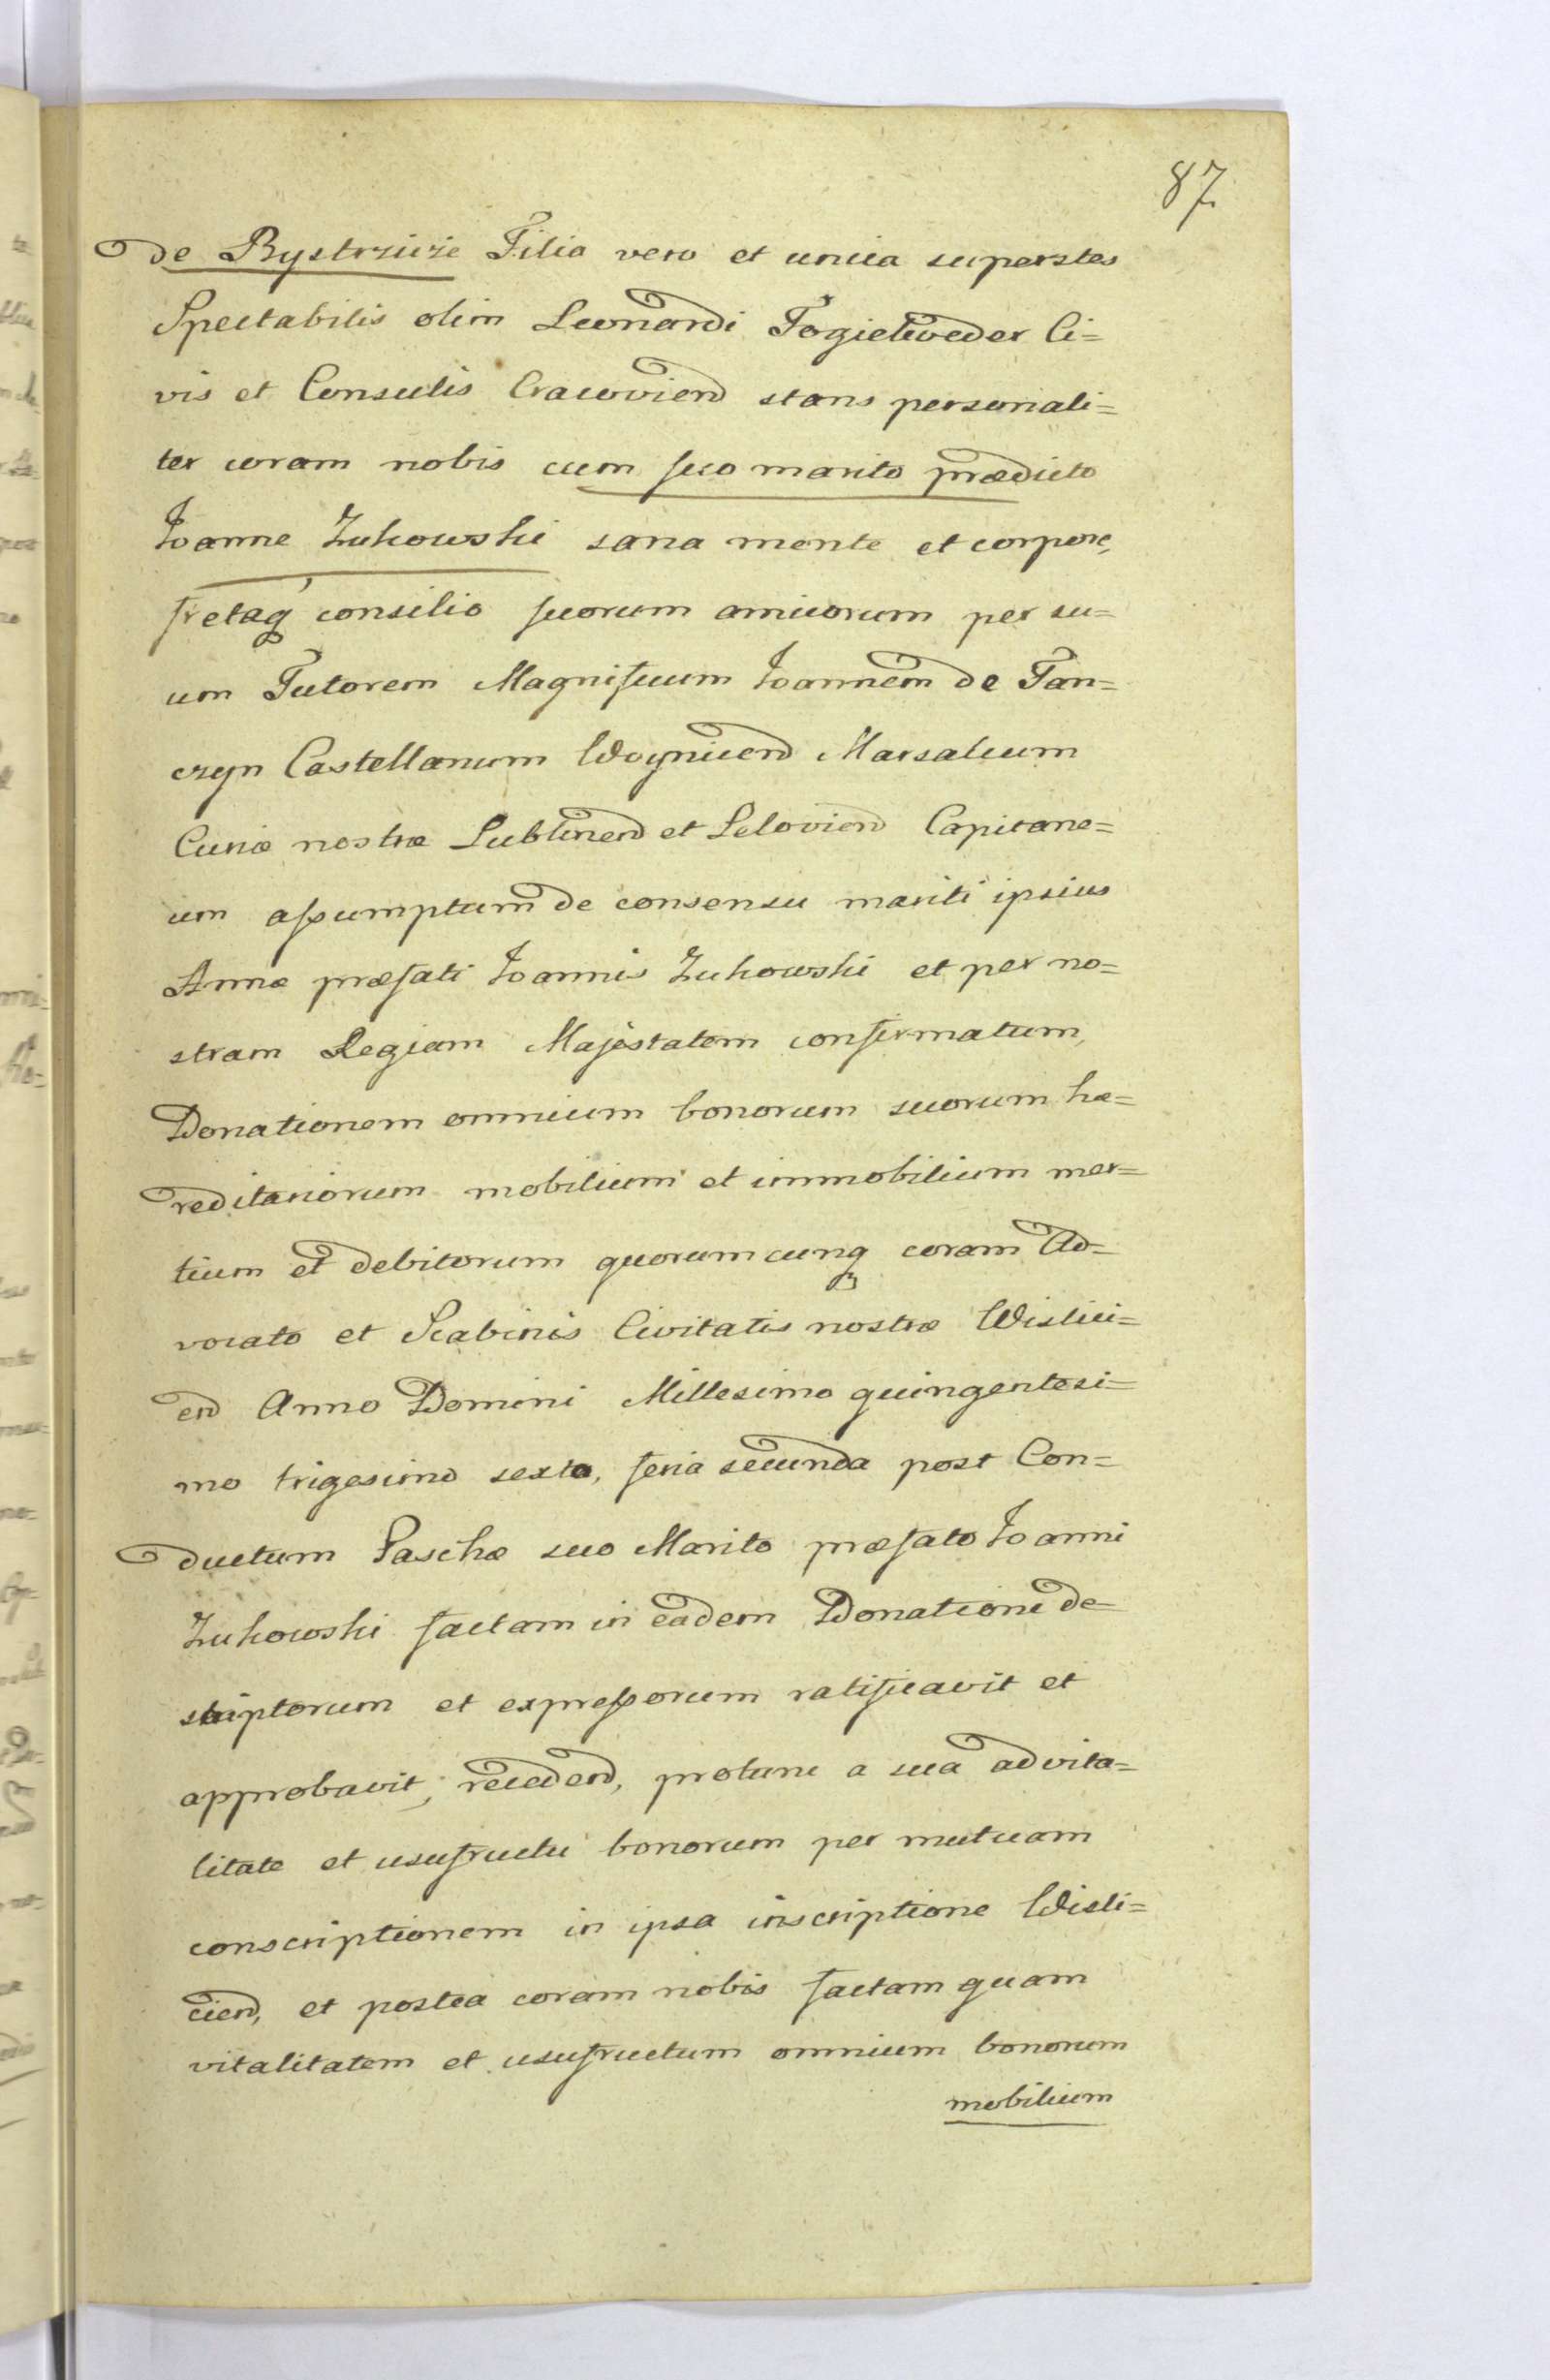 87
de Bystrzicze Filia vero et unica superstes
Spectabilis olim Leonardi Fogielweder Ci=
vis et Consulis Cracovien̄ stans personali=
ter coram nobis cum suo marito prædicto
Joanne Zukowski sana mente et corpore,
fretaq́ consilio suorum amicorum per su=
um Tutorem Magnificum Joannem de Tan=
czyn Castellanum Woynicen̄ Marsalcum
Curiæ nostræ Lublinen̄ et Lelovien̄ Capitane=
um assumptum de consensu mariti ipsius
Annæ præfati Joannis Zukowski et per no=
stram Regiam Majestatem confirmatum,
Donationem omnium bonorum suorum hæ=
reditariorum mobilium et immobilium mer=
tium et debitorum quorumcunqꝫ coram Ad=
vocato et Scabinis Civitatis nostræ Wislici=
en̄ Anno Domini Millesimo quingentesi=
mo trigesimo sexto, feria secunda post Con=
ductum Paschæ suo Marito præfato Joanni
Zukowski factam in eadem Donatione de=
scriptorum et expressorum ratificavit et
approbavit, receden̄, protunc a sua advita=
litate et usufructu bonorum per mutuam
conscriptionem in ipsa inscriptione Wisli=
cien̄, et postea coram nobis factam quam
vitalitatem et usufructum omnium bonorum
mobilium